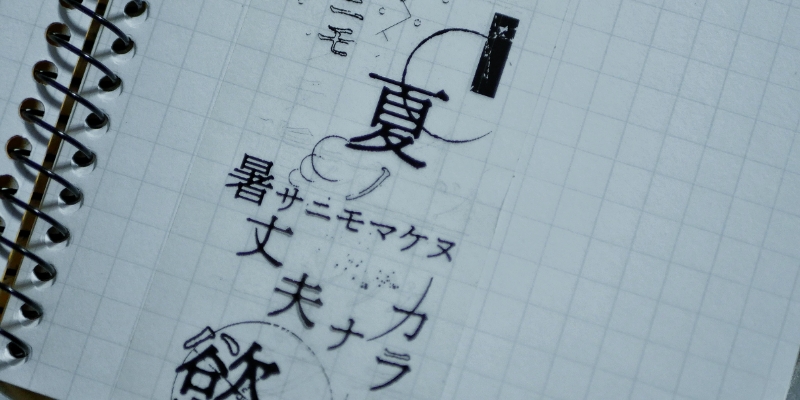 ニモ
夏ノ
暑サニモマケヌ
丈夫ナ
カラ